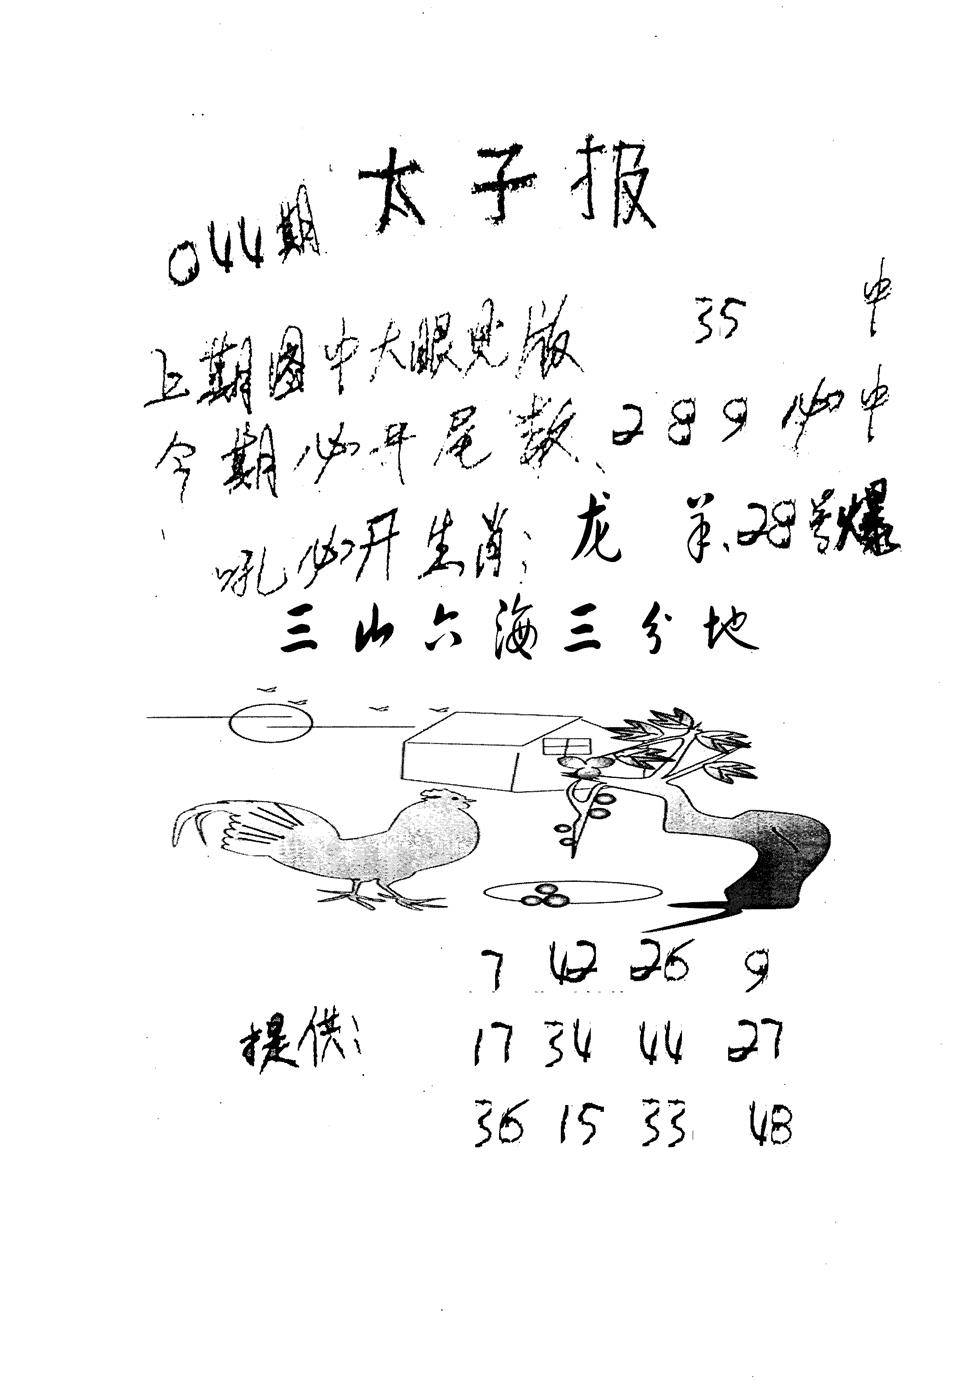 太子报
044期
上期图中大眼见版 35 中
今期必开尾数、289必中
吼必开生肖：龙 羊、28号爆
三山六海三分地
7 42 26 9
提供： 17 34 44 27
36 15 33 48